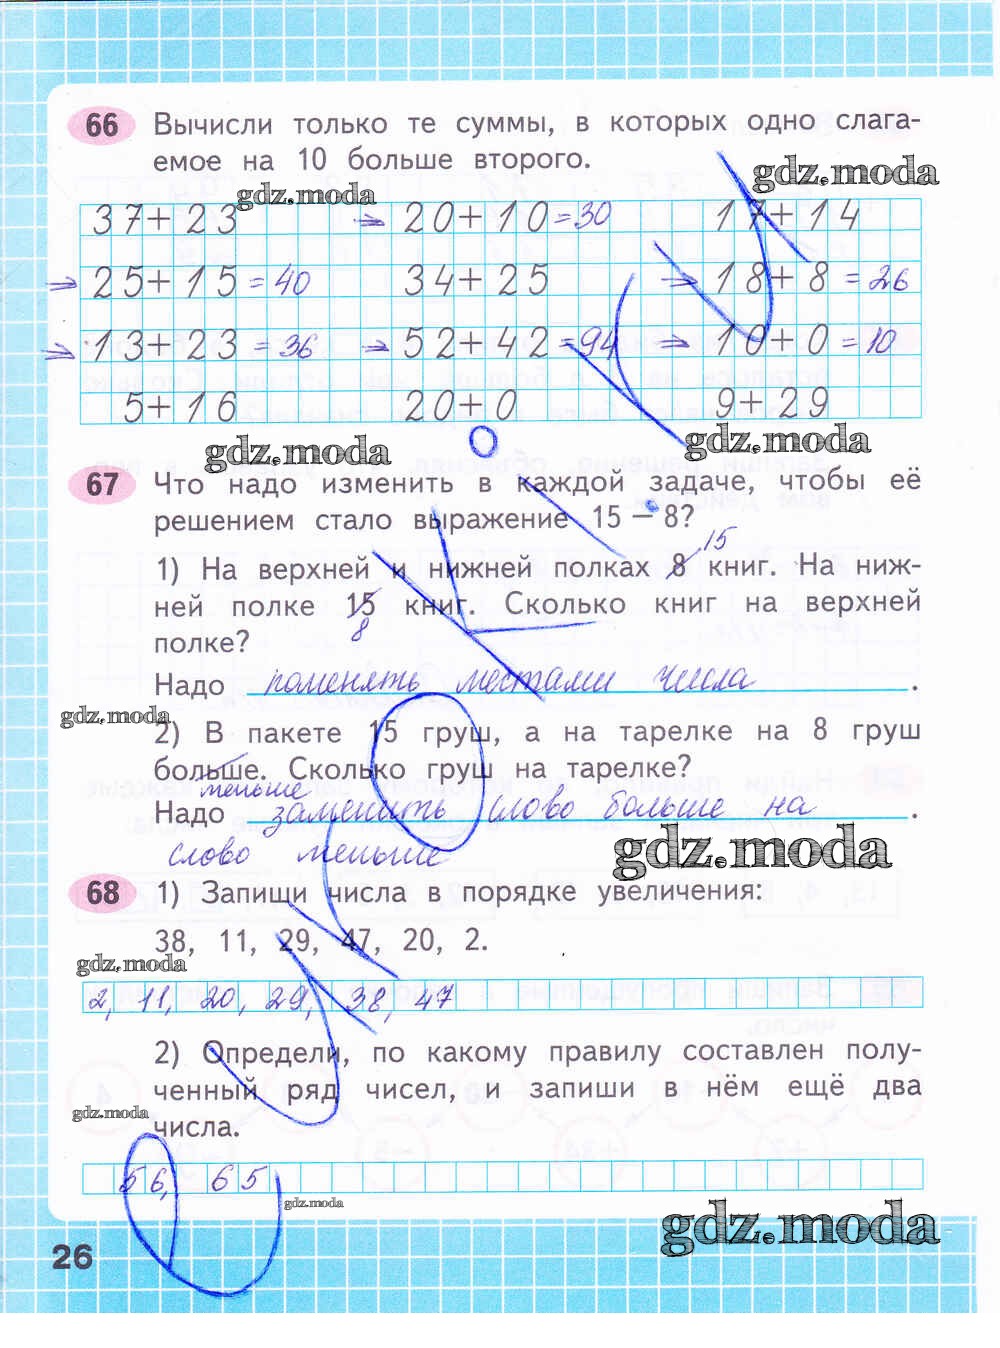 66 Вычисли только те суммы, в которых одно слага-
емое на 10 больше второго.
gdz.moda
gdz.moda
37+23 → 20+10=30 17+14
→ 25+15=40 34+25 → 18+8=26
→ 13+23=36 → 52+42=94 → 10+0=10
5+16 20+0 9+29
gdz.moda
gdz.moda
67 Что надо изменить в каждой задаче, чтобы её
решением стало выражение 15 – 8?
15
1) На верхней и нижней полках 8 книг. На ниж-
ней полке 15 книг. Сколько книг на верхней
8
полке?
Надо поменять местами числа.
gdz.moda
2) В пакете 15 груш, а на тарелке на 8 груш
больше. Сколько груш на тарелке?
меньше
Надо заменить слово больше на.
слово меньше
gdz.moda
68 1) Запиши числа в порядке увеличения:
38, 11, 29, 47, 20, 2.
gdz.moda
2, 11, 20, 29, 38, 47
2) Определи, по какому правилу составлен полу-
ченный ряд чисел, и запиши в нём ещё два
gdz.moda
числа.
56, 65
gdz.moda
gdz.moda
26